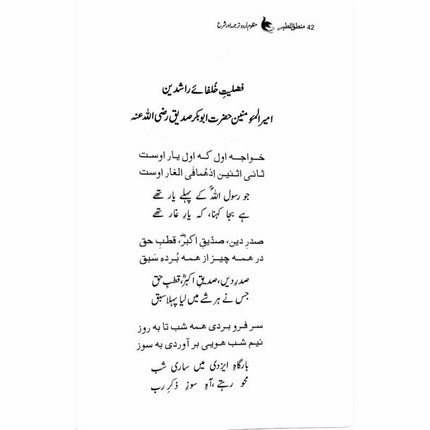 42 منطق الطیر منظوم اردو ترجمہ اور شرح
فضلیتِ خُلفائے راشدین
امیر المؤمنین حضرت ابوبکر صدیق رضی اللہ عنہ
خواجـہ اول کـہ اول یـار اوسـت
ثـانـی اثـنـیـن اذهُمـافی الغار اوست
جو رسول اللہؐ کے پہلے یار تھے
ہے بجا کہنا، کہ یارِ غار تھے
صدرِ دین، صدّیق اکبرؓ، قطبِ حق
در همـه چیـز از همـه بُرده سَبق
صدرِ دیں، صدیقِ اکبرؓ، قطبِ حق
جس نے ہر شے میں لیا پہلا سبق
سـر فـرو بـردی همه شب تا به روز
نیـم شب هـویـی بـر آوردی بـه سـوز
بارگاہِ ایزدی میں ساری شب
محو رہتے، آہِ سوزِ ذکرِ رب